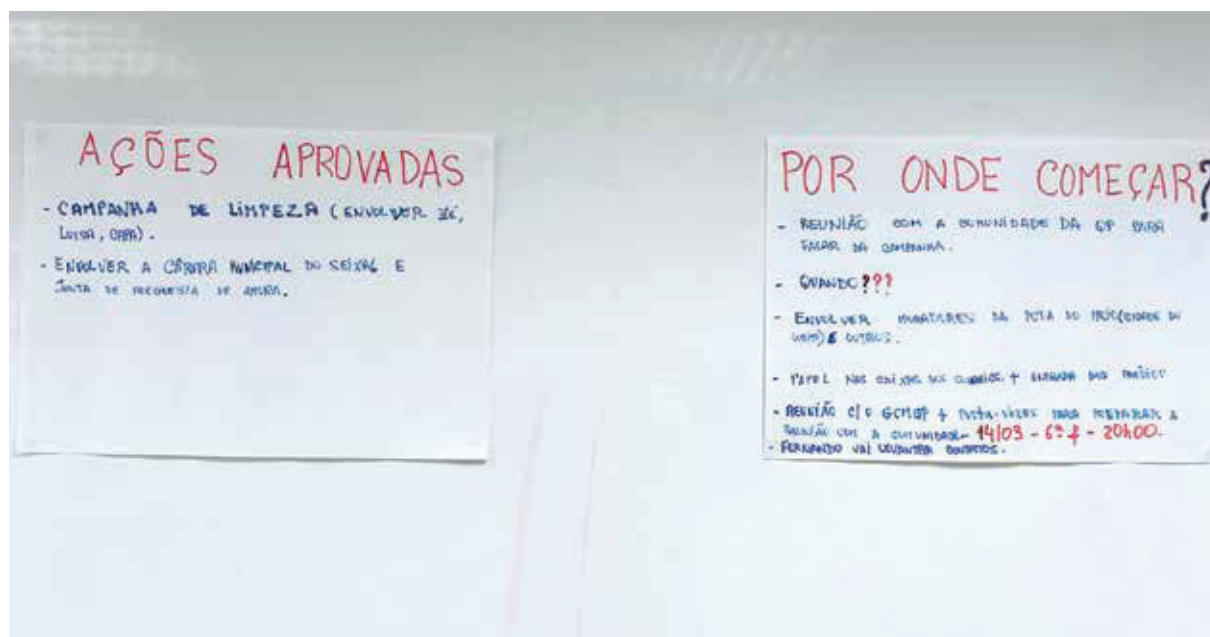 AÇÕES APROVADAS
- CAMPANHA DE LIMPEZA (ENVOLVER ZÉ,
LUISA, ).
- ENVOLVER A CÂMARA MUNICIPAL DO SEIXAL E
JUNTA DE FREGUESIA DE AMORA.
POR ONDE COMEÇAR?
- REUNIÃO COM A COMUNIDADE DA QP PARA
FALAR DA CAMPANHA.
- QUANDO???
- ENVOLVER MORADORES DA DO (CIDADE DE
) E OUTROS.
- PAPEL NAS CAIXAS DOS CORREIOS + ENTRADA DOS PRÉDIOS
- REUNIÃO C/ O + PORTA-VOZES PARA PREPARAR A
REUNIÃO COM A COMUNIDADE- 14/03 - 6ª f - 20h00.
- FERNANDO VAI LEVANTAR CONTATOS.